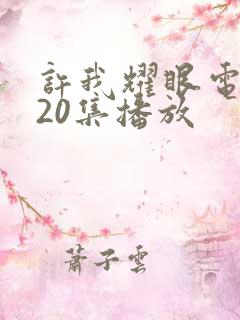 許我耀眼電
20集播放
蕭子雲